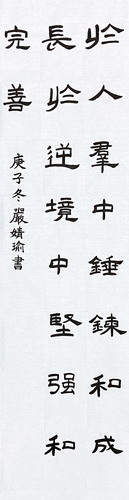 於人羣中錘鍊和成
長於逆境中堅强和
完善
庚子冬嚴婧瑜書